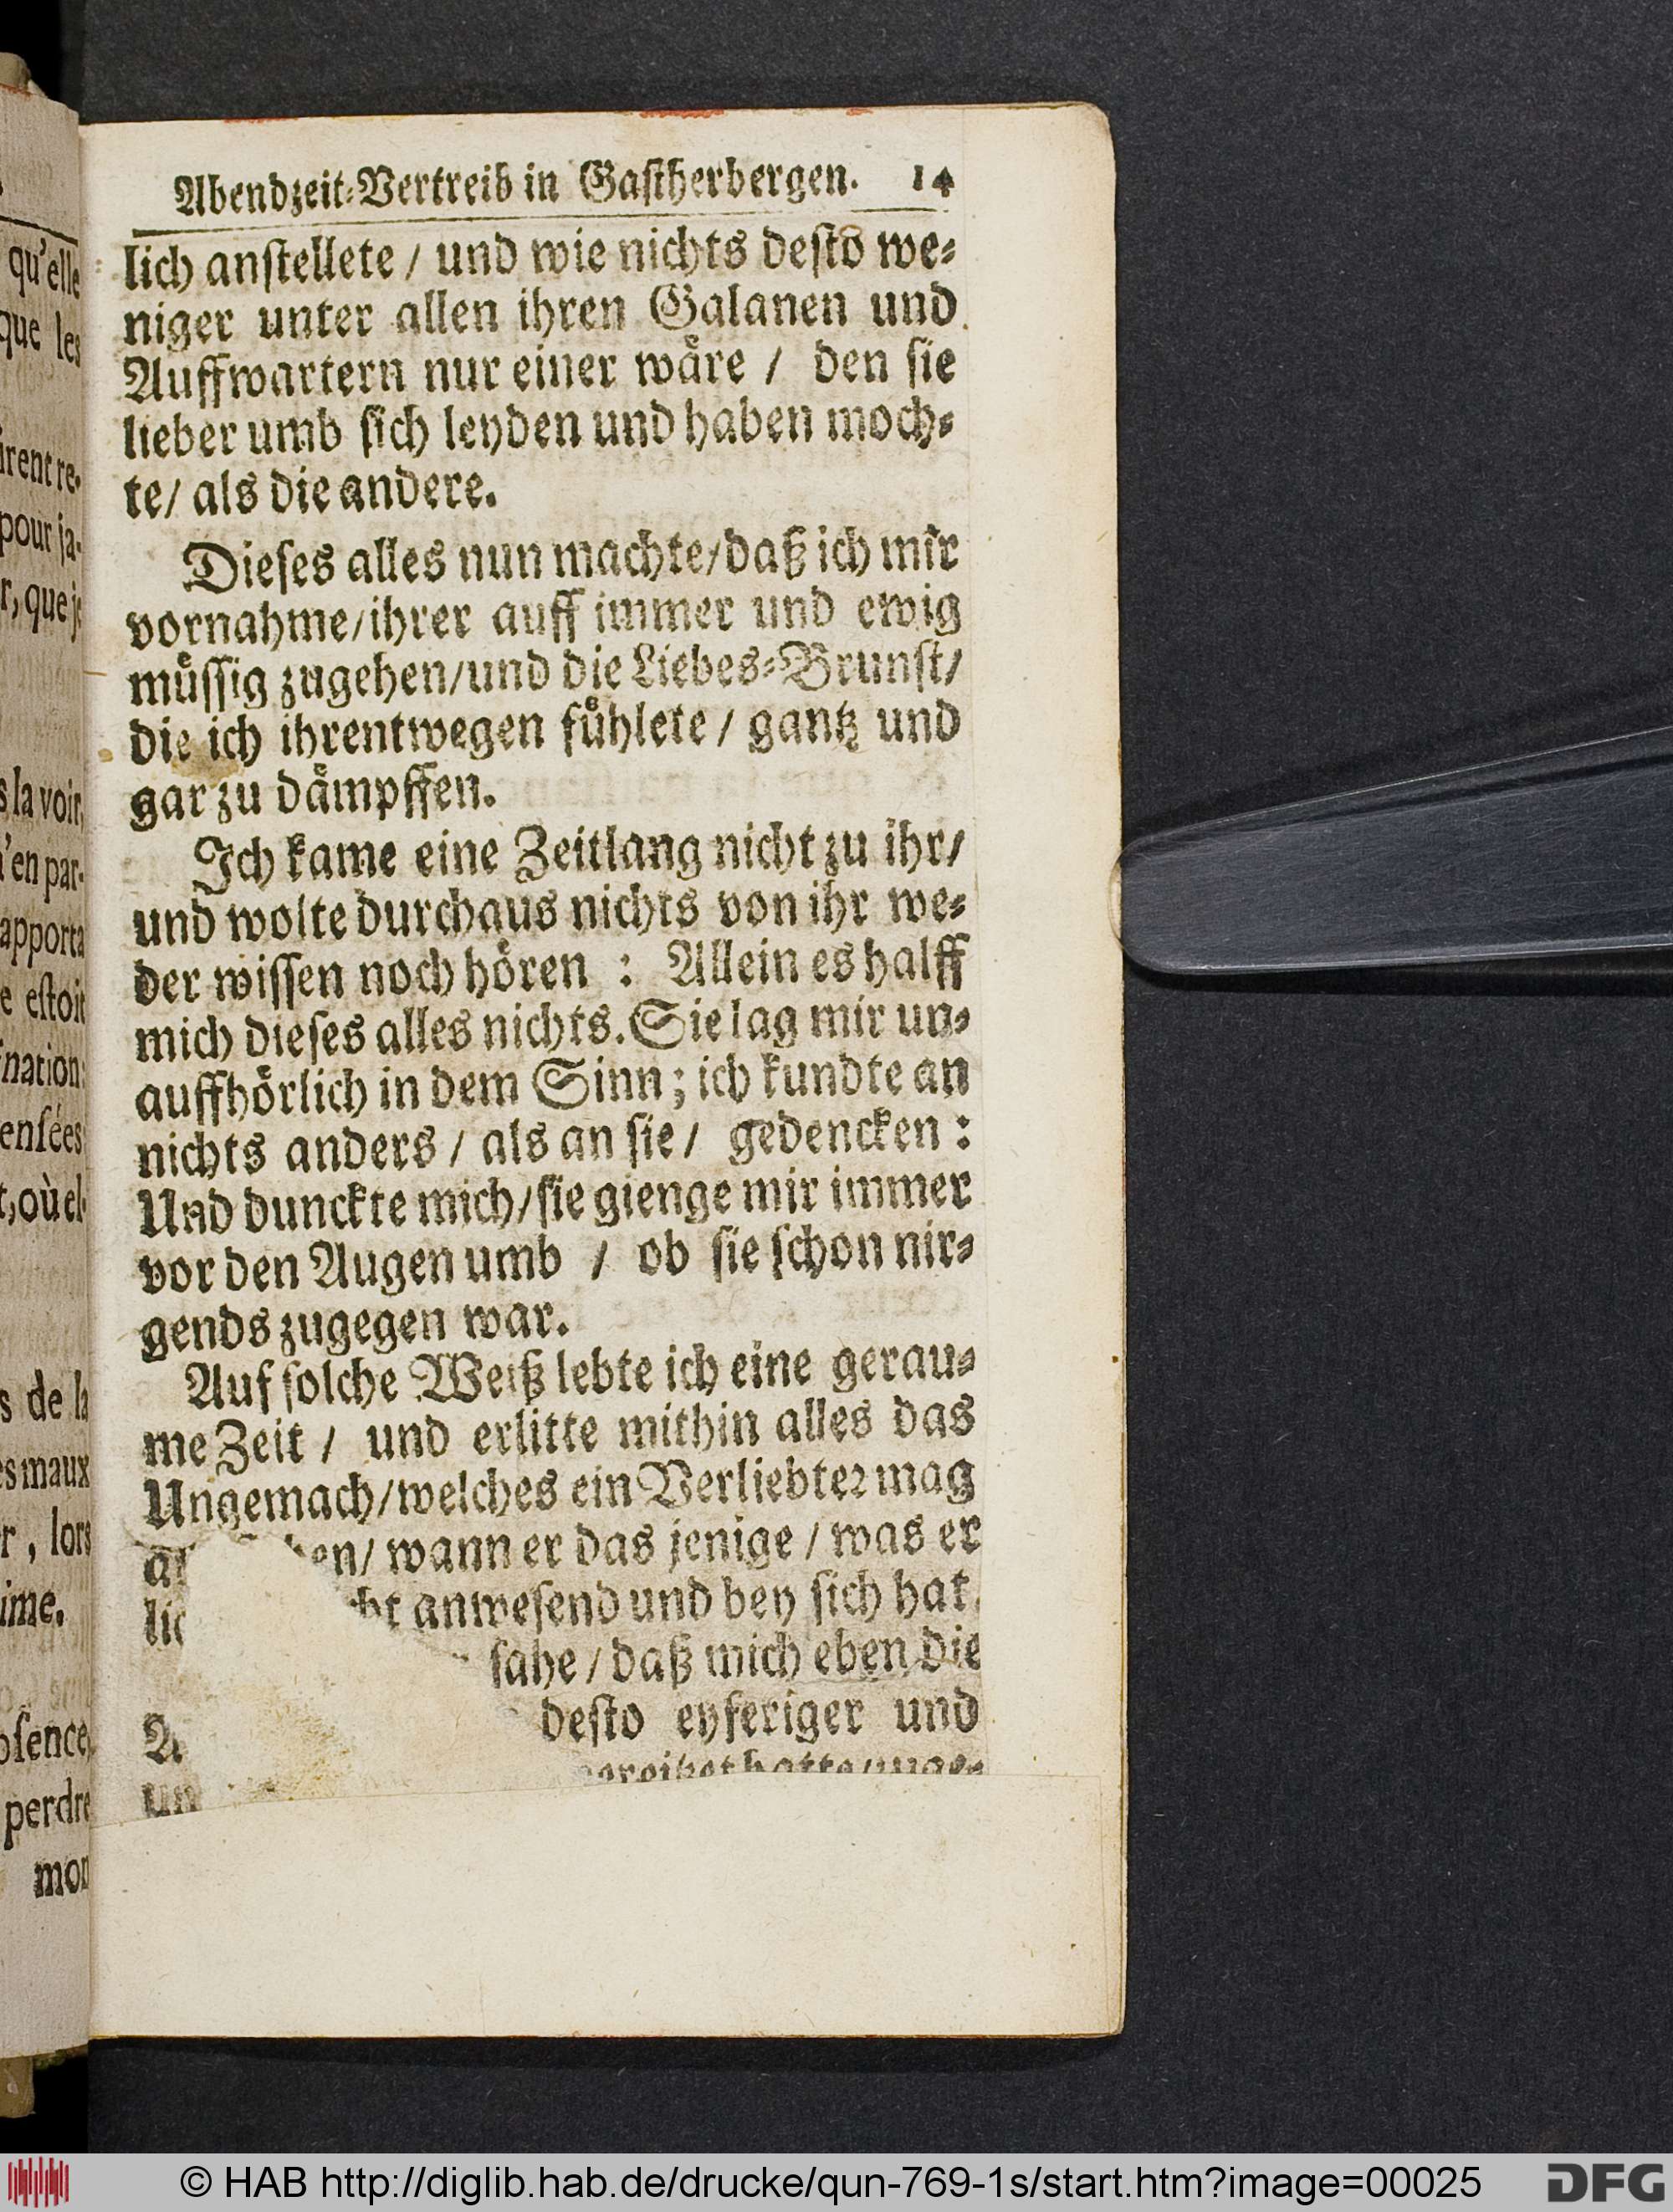 Abendzeit-Vertreib in Gastherbergen. 14
lich anstellete / und wie nichts desto we-
niger unter allen ihren Galanen und
Auffwartern nur einer wåre / den sie
lieber umb sich leyden und haben moch-
te / als die andere.
Dieses alles nun machte / daß ich mir
vornahme / ihrer auff immer und ewig
můssig zugehen / und die Liebes-Brunst /
die ich ihrentwegen fůhlete / gantz und
gar zu dåmpffen.
Ich kame eine Zeitlang nicht zu ihr /
und wolte durchaus nichts von ihr we-
der wissen noch hören : Allein es halff
mich dieses alles nichts. Sie lag mir un-
auffhörlich in dem Sinn ; ich kundte an
nichts anders / als an sie / gedencken :
Und dunckte mich / sie gienge mir immer
vor den Augen umb / ob sie schon nir-
gends zugegen war.
Auf solche Weiß lebte ich eine gerau-
me Zeit / und erlitte mithin alles das
Ungemach / welches ein Verliebter mag
wann er das jenige / was er
anwesend und bey sich hat
sahe / daß mich eben die
desto eyferiger und
qu'elle
que les
pour ja-
r, que je
s la voir,
n'en par-
apporta
e estoit
nation:
ensées
t, où el-
s de la
es maux
r , lors
ime.
bsence,
perdre
mon
© HAB http://diglib.hab.de/drucke/qun-769-1s/start.htm?image=00025
DFG